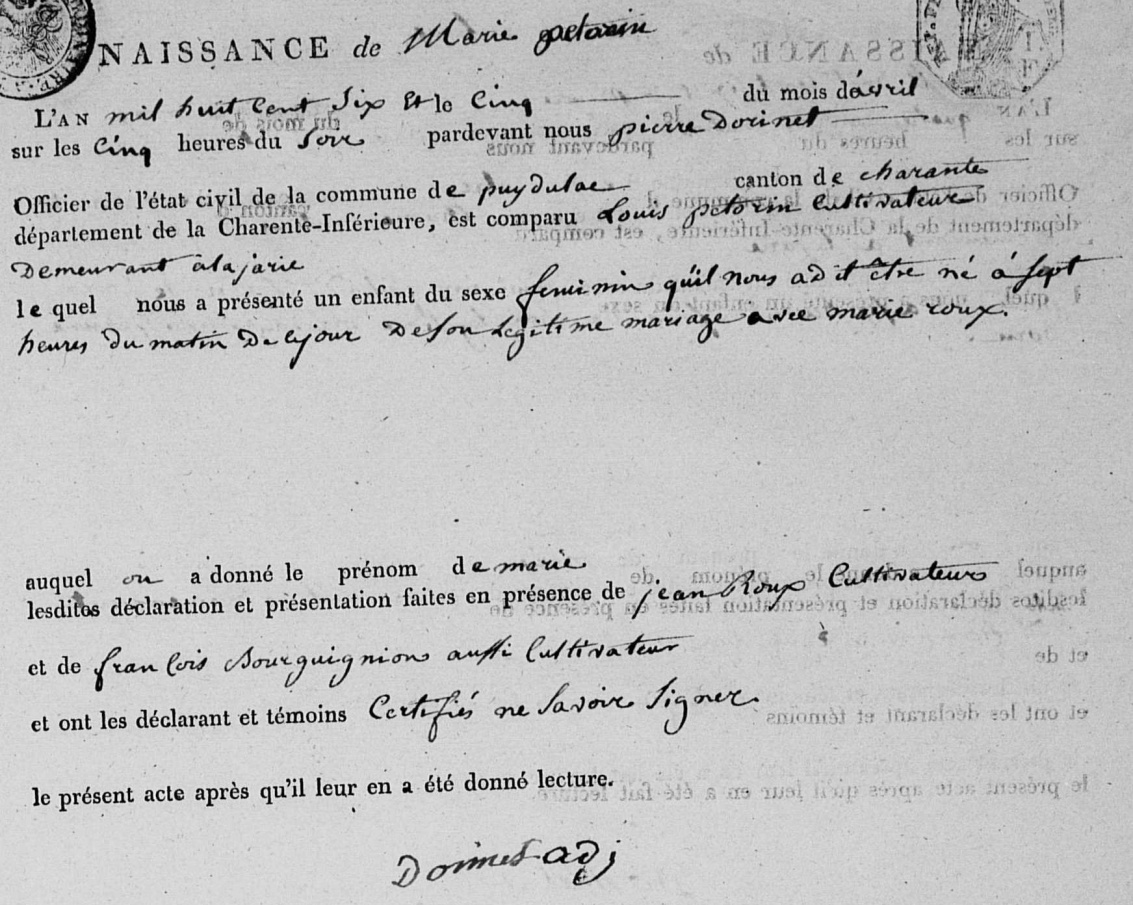 NAISSANCE de Marie petorin
L'AN mil huit Cent Six Et le Cinq du mois d'avril
sur les Cinq heures du Soir pardevant nous pierre Dorinet
Officier de l'état civil de la commune de puydulac canton de charante
département de la Charente-Inférieure, est comparu Louis petorin Cultivateur
Demeurant à la jarie
le quel nous a présenté un enfant du sexe feminin qu'il nous a dit être né à Sept
heures du matin De ce jour De Son Legitime mariage avec marie roux.
auquel on a donné le prénom de marie
lesdites déclaration et présentation faites en présence de jean Roux Cultivateur
et de françois Bourguignion aussi Cultivateur
et ont les déclarant et témoins Certifiés ne Savoir Signer.
le présent acte après qu'il leur en a été donné lecture.
Dorinet adj